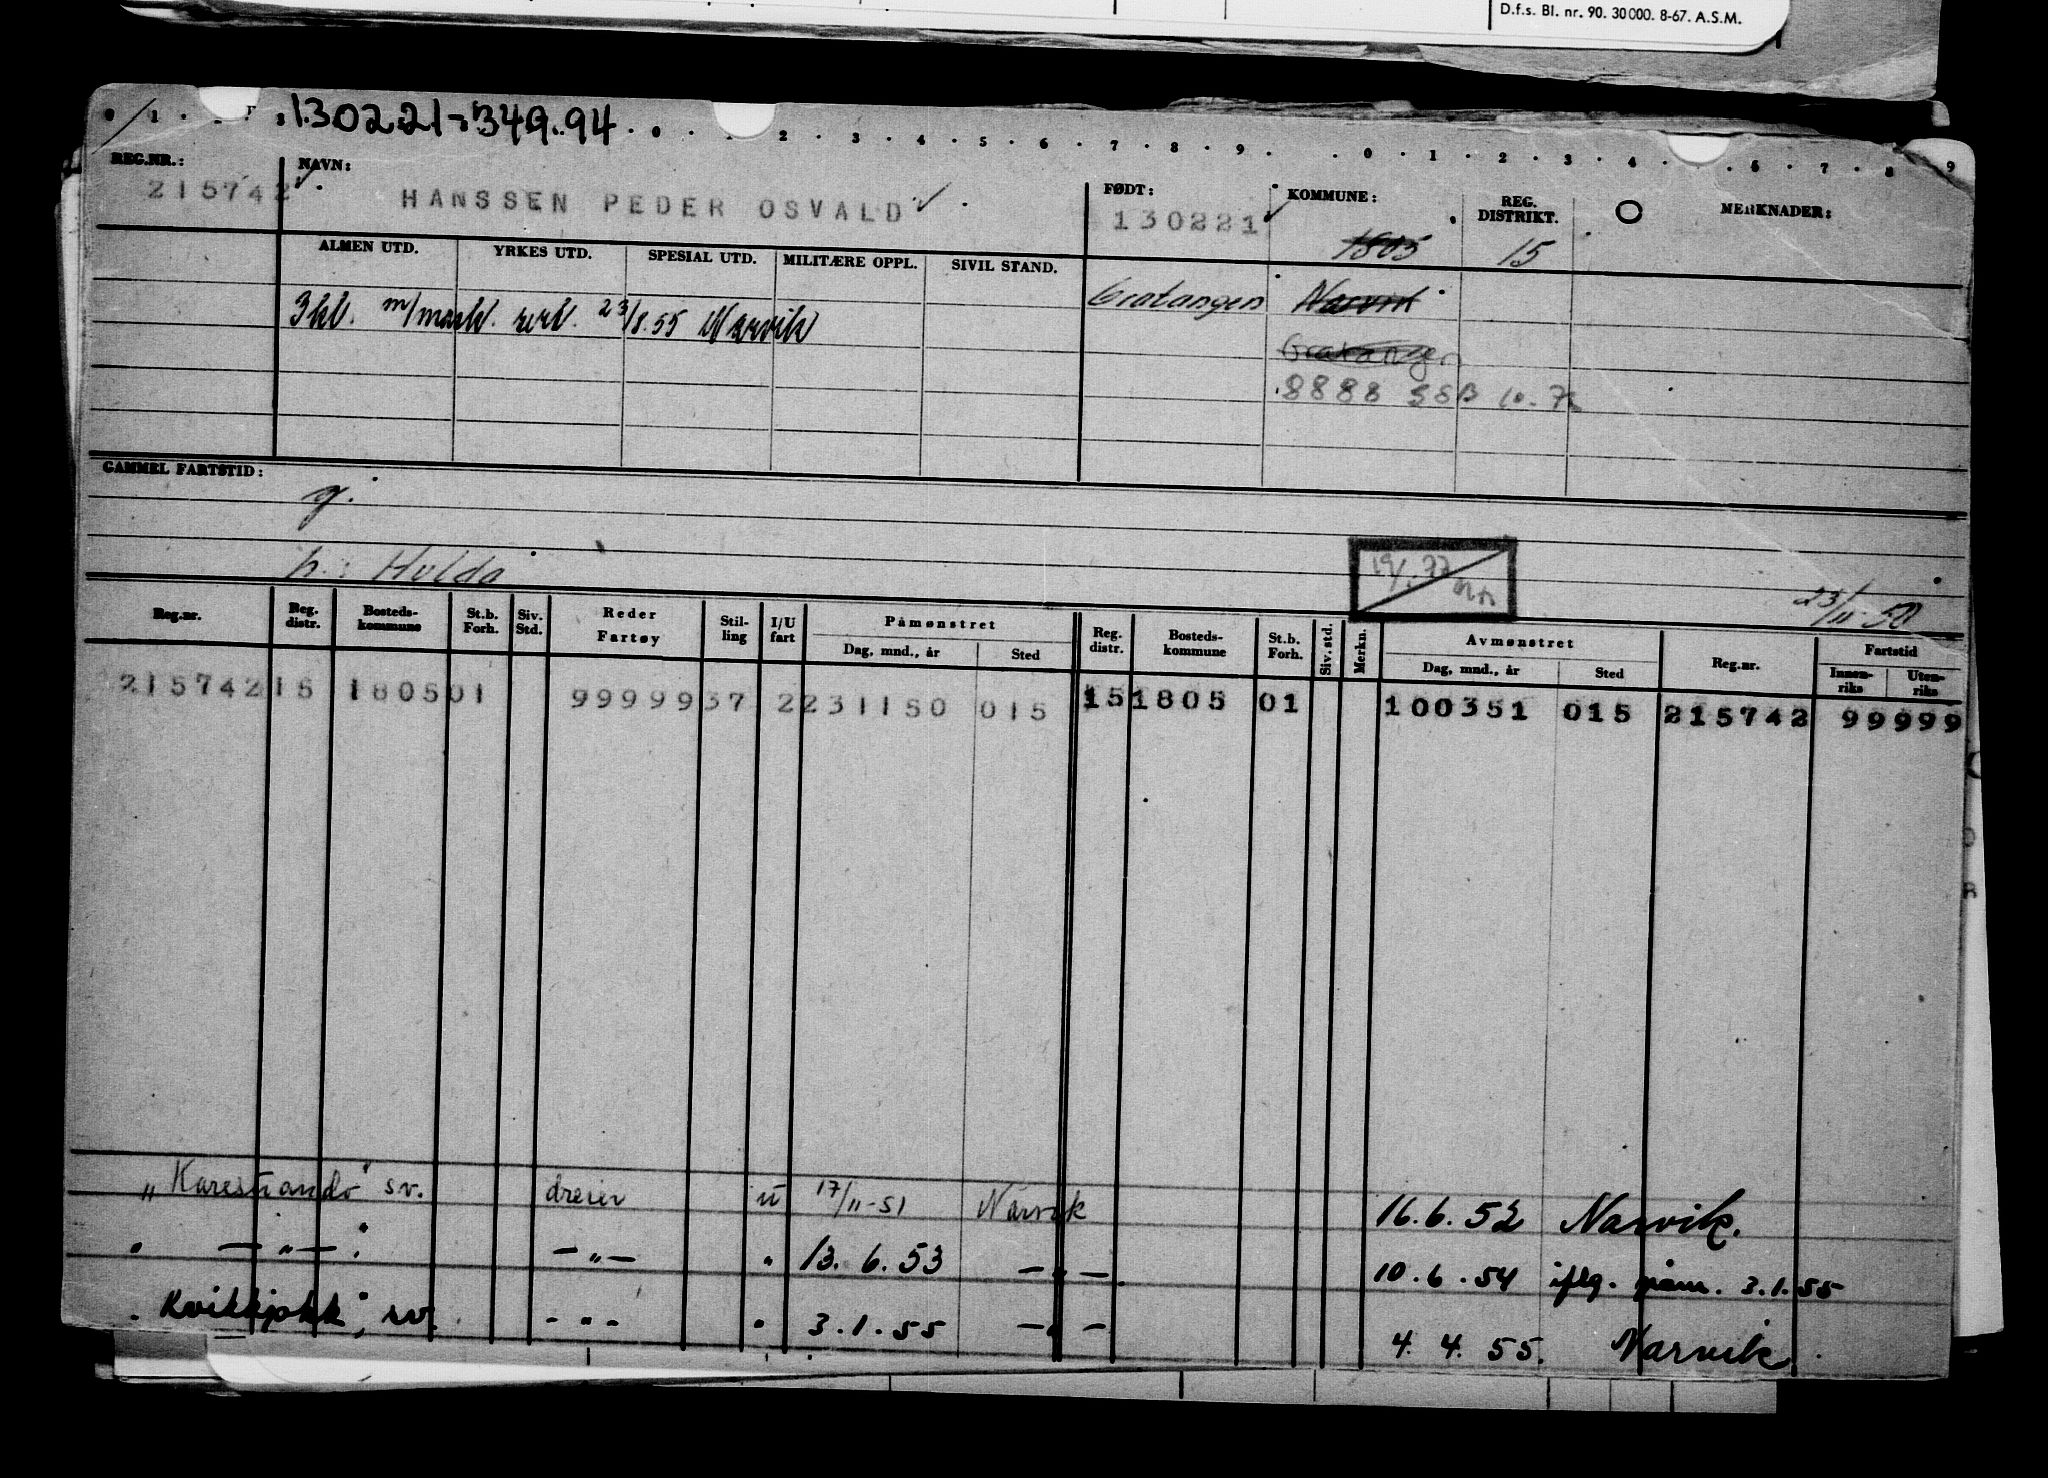 D.f.s. Bl. nr. 90. 30000. 8-67. A.S.M.
130221-349.94
REG.NR.: NAVN: FØDT: KOMMUNE: REG. DISTRIKT. MERKNADER:
215742 HANSSEN PEDER OSVALD 130221 1805 15
ALMEN UTD. YRKES UTD. SPESIAL UTD. MILITÆRE OPPL. SIVIL STAND.
3 kl. m/mask. 23/8.55 Narvik Gratangen Narvik
Gratangen
8888 SSB 10.72
GAMMEL FARTSTID:
g.
h.: Hulda
19/1.77
23/11-50
Reg.nr. Reg. distr. Bosteds-kommune St.b. Forh. Siv. Std. Reder Fartøy Stil-ling I/U fart Påmønstret Dag, mnd., år Sted Reg. distr. Bosteds-kommune St.b. Forh. Siv. std. Merkn. Avmønstret Dag, mnd., år Sted Reg.nr. Fartstid Innen-riks Uten-riks
215742 15 1805 01 99999 37 2 231150 015 15 1805 01 100351 015 215742 99999
"Karesuando" sv. dreier u 17/11-51 Narvik 16.6.52 Narvik.
" — " — " — " — " 13.6.53 — " — 10.6.54 iflg. påm. 3.1.55
"Kvikkjokk", sv. - " - " 3.1.55 — " — 4.4.55. Narvik.